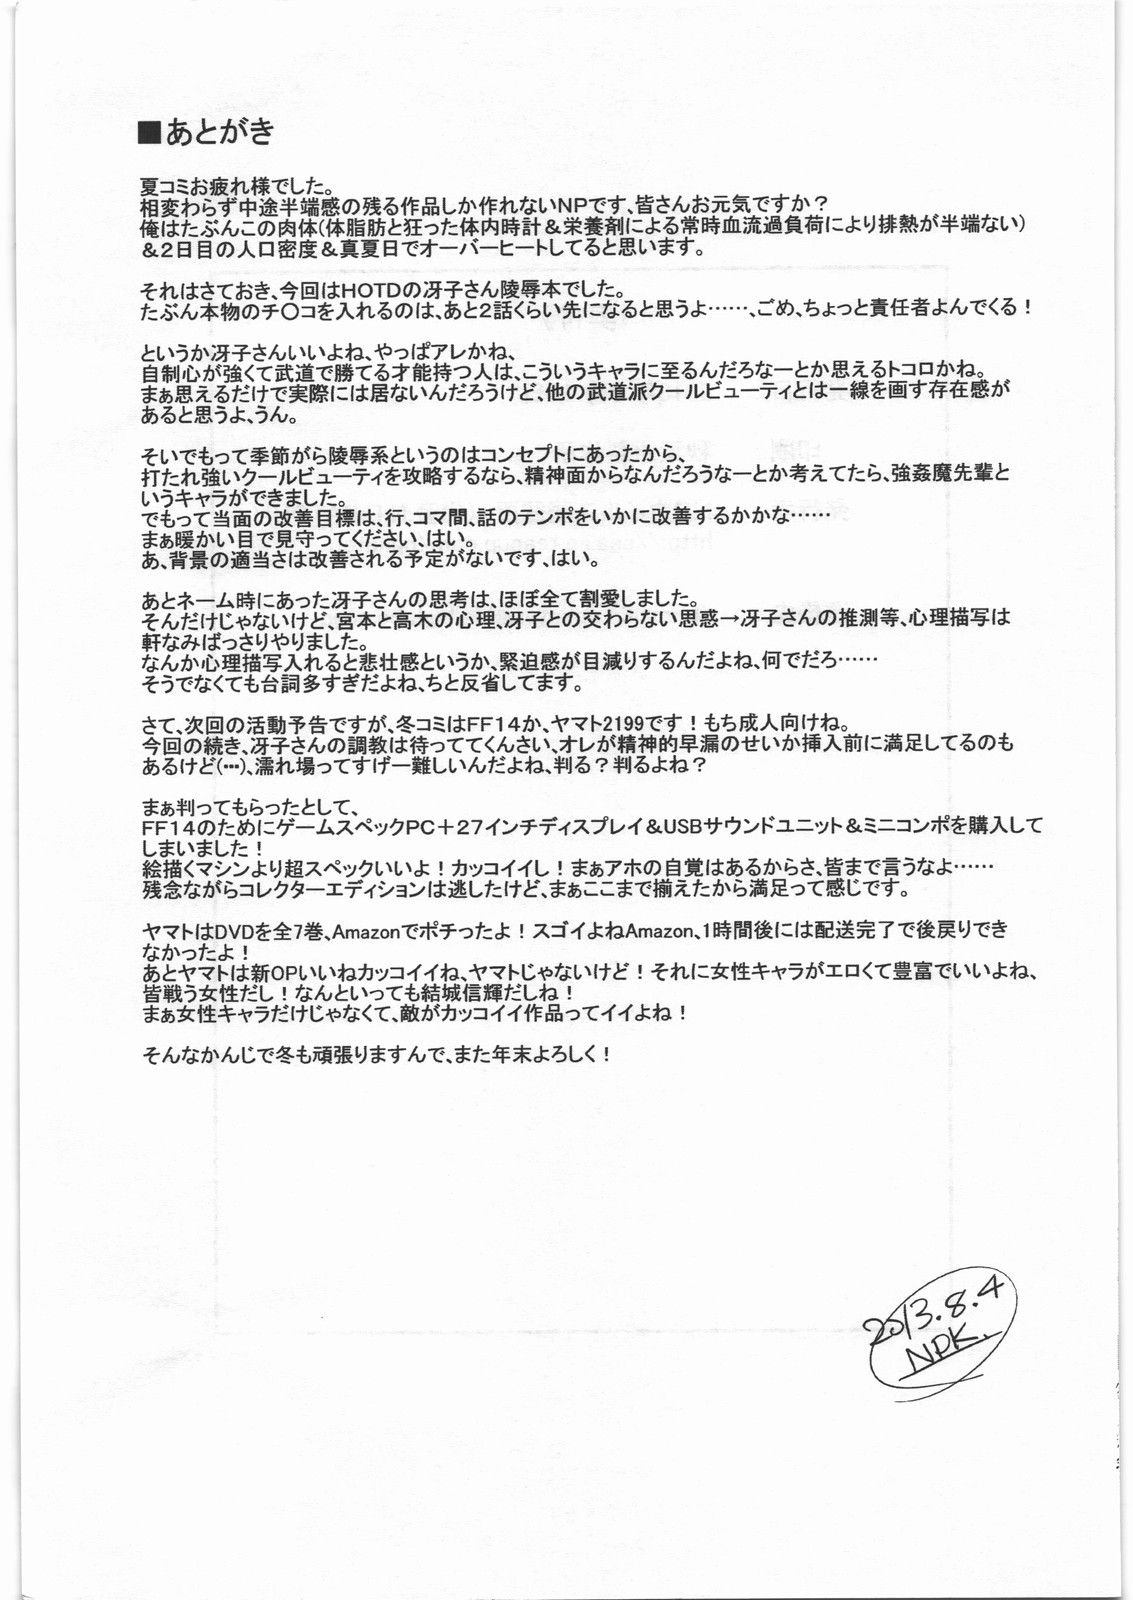 ■あとがき
夏コミお疲れ様でした。
相変わらず中途半端感の残る作品しか作れないNPです、皆さんお元気ですか？
俺はたぶんこの肉体(体脂肪と狂った体内時計＆栄養剤による常時血流過負荷により排熱が半端ない)
＆2日目の人口密度＆真夏日でオーバーヒートしてると思います。
それはさておき、今回はHOTDの冴子さん陵辱本でした。
たぶん本物のチ〇コを入れるのは、あと2話くらい先になると思うよ……、ごめ、ちょっと責任者よんでくる！
というか冴子さんいいよね、やっぱアレかね、
自制心が強くて武道で勝てる才能持つ人は、こういうキャラに至るんだろなーとか思えるトコロかね。
まぁ思えるだけで実際には居ないんだろうけど、他の武道派クールビューティとは一線を画す存在感が
あると思うよ、うん。
そいでもって季節がら陵辱系というのはコンセプトにあったから、
打たれ強いクールビューティを攻略するなら、精神面からなんだろうなーとか考えてたら、強姦魔先輩と
いうキャラができました。
でもって当面の改善目標は、行、コマ間、話のテンポをいかに改善するかかな……
まぁ暖かい目で見守ってください、はい。
あ、背景の適当さは改善される予定がないです、はい。
あとネーム時にあった冴子さんの思考は、ほぼ全て割愛しました。
そんだけじゃないけど、宮本と高木の心理、冴子との交わらない思惑→冴子さんの推測等、心理描写は
軒なみばっさりやりました。
なんか心理描写入れると悲壮感というか、緊迫感が目減りするんだよね、何でだろ……
そうでなくても台詞多すぎだよね、ちと反省してます。
さて、次回の活動予告ですが、冬コミはFF14か、ヤマト2199です！もち成人向けね。
今回の続き、冴子さんの調教は待っててくんさい、オレが精神的早漏のせいか挿入前に満足してるのも
あるけど(…)、濡れ場ってすげー難しいんだよね、判る？判るよね？
まぁ判ってもらったとして、
FF14のためにゲームスペックPC＋27インチディスプレイ＆USBサウンドユニット＆ミニコンポを購入して
しまいました！
絵描くマシンより超スペックいいよ！カッコイイし！まぁアホの自覚はあるからさ、皆まで言うなよ……
残念ながらコレクターエディションは逃したけど、まぁここまで揃えたから満足って感じです。
ヤマトはDVDを全7巻、Amazonでポチったよ！スゴイよねAmazon、1時間後には配送完了で後戻りでき
なかったよ！
あとヤマトは新OPいいねカッコイイね、ヤマトじゃないけど！それに女性キャラがエロくて豊富でいいよね、
皆戦う女性だし！なんといっても結城信輝だしね！
まぁ女性キャラだけじゃなくて、敵がカッコイイ作品ってイイよね！
そんなかんじで冬も頑張りますんで、また年末よろしく！
2013.8.4
NPK.